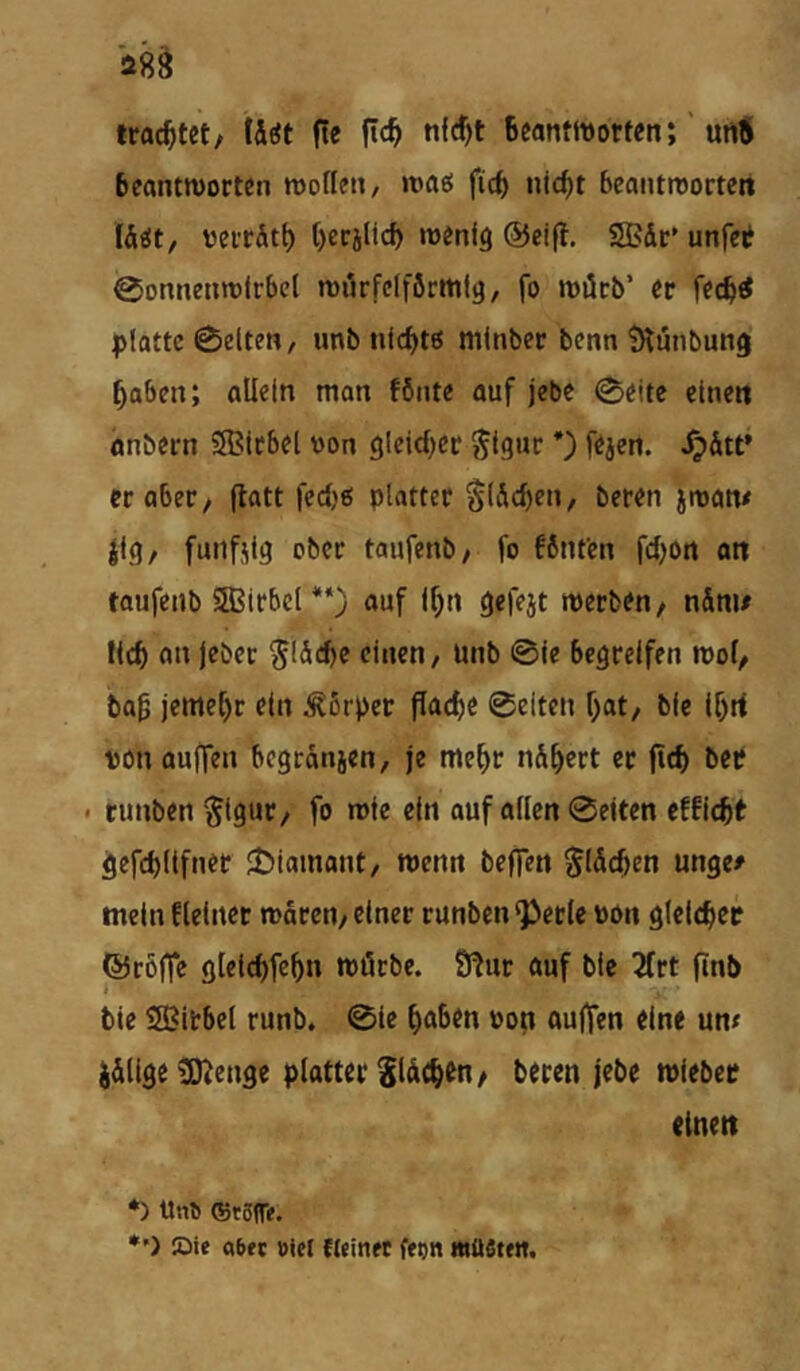 288
trachtet, läßt sie sich nicht beantworten; und
beantworten wollen, was sich nicht beantworten
läßt, verräth herzlich wenig Geist. Wär' unser
Sonnenwirbel würfelförmig, so würb' er sechs
platte Seiten, und nichts minder denn Ründung
haben; allein man könte auf jede Seite einen
andern Wirbel von gleicher Figur *) sezen. Hätt'
er aber, statt sechs platter Flächen, deren zwan-
zig, funfzig oder tausend, so könten schon an
tausend Wirbel **) auf ihn gesezt werden, näm-
lich an jeder Fläche einen, und Sie begreifen wol,
daß jemehr ein Körper flache Seiten hat, die ihn
von aussen begränzen, je mehr nähert er sich der
runden Figur, so wie ein auf allen Seiten efficht
geschlifner Diamant, wenn dessen Flächen unge-
mein kleiner wären, einer runden Perle von gleicher
Grösse gleichsehn würde. Nur auf die Art sind
die Wirbel rund. Sie haben von aussen eine un-
zälige Menge platter Flächen, deren jede wieder
einen
*) Und Grösse.
**) Die aber viel kleiner seyn müsten.